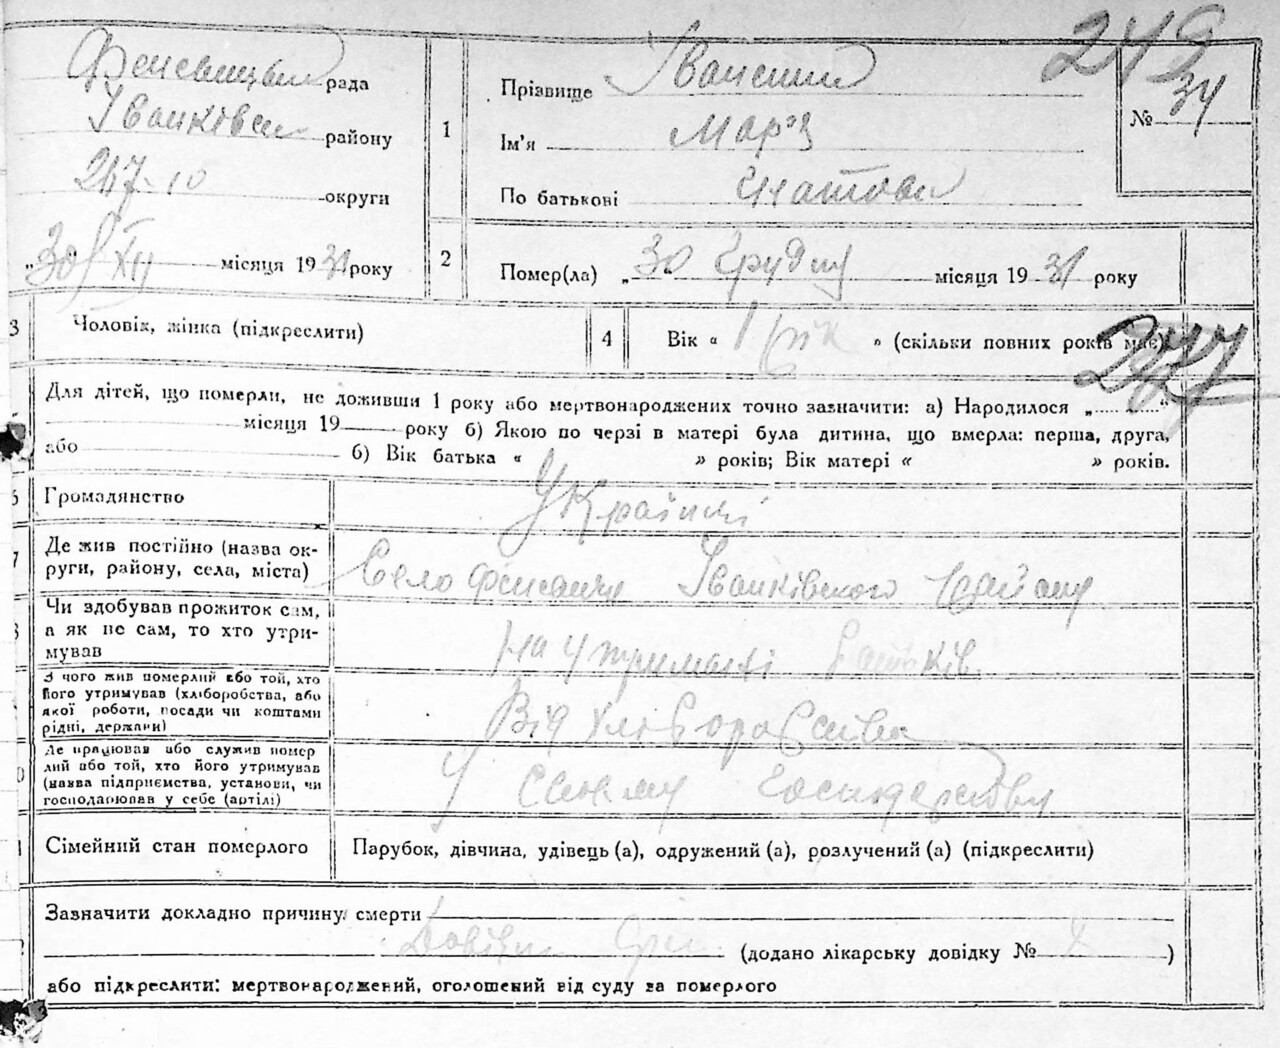 рада
Прізвище
№ 34
району
1
Ім'я Марія
округи
По батькові
„30" XII місяця 1931 року
2
Помер(ла) „30 Грудня місяця 1931 року
3 Чоловік, жінка (підкреслити)
4 Вік « 1 рік » (скільки повних років має)
Для дітей, що померли, не доживши 1 року або мертвонароджених точно зазначити: а) Народилося „ "
місяця 19 року б) Якою по черзі в матері була дитина, що вмерла: перша, друга,
або б) Вік батька « » років; Вік матері « » років.
Громадянство
Де жив постійно (назва ок-
руги, району, села, міста)
Село Іванківского району
Чи здобував прожиток сам,
а як не сам, то хто утри-
мував
На утримані батьків
З чого жив померлий або той, хто
його утримував (хліборобства, або
якої роботи, посади чи коштами
рідні, держави)
Від хліборобства
Де працював або служив помер
лий або той, хто його утримував
(назва підприємства, установи, чи
господарював у себе (артілі)
У своєму господарстви
Сімейний стан померлого
Парубок, дівчина, удівець (а), одружений (а), розлучений (а) (підкреслити)
Зазначити докладно причину смерти
(додано лікарську довідку № )
або підкреслити: мертвонароджений, оголошений від суду за померлого